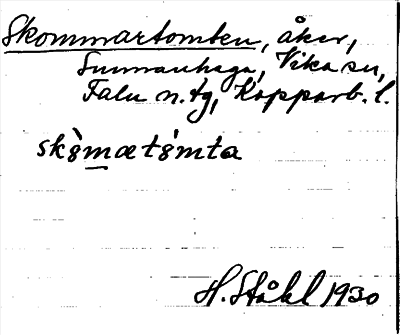 Skommartomten, åker,
Sunnanhaga, Vika sn,
Falu n. tg, Kopparb. l.
sk8̀mæt8̀mta
H. Ståhl 1930